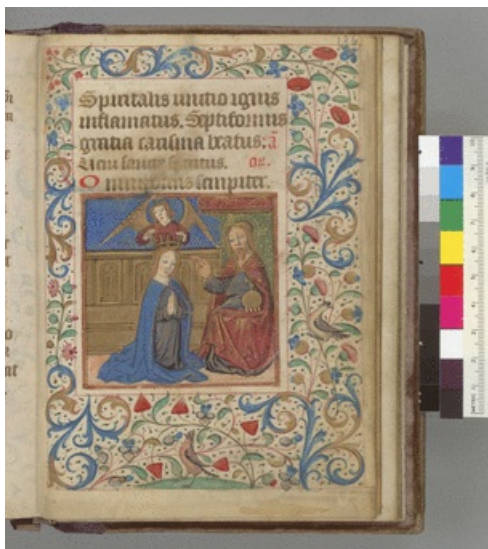 Spiritalis unctio ignis
inflamatus. Septiformis
gratia carisma beatus: a
Veni sancte spiritus. or.
Omnipotens sempiter.